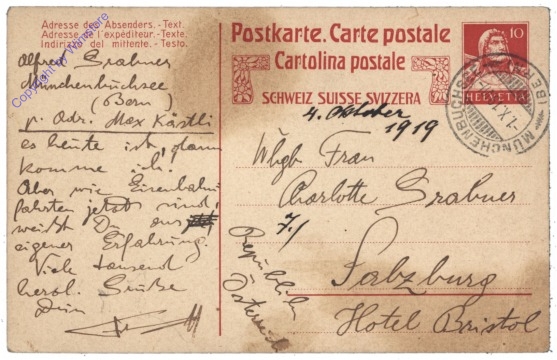 Adresse des Absenders. - Text.
Adresse de l'expéditeur. - Texte.
Indirizzo del mittente. - Testo.
Copyright by Winvstore
Alfred Grabner
Münchenbuchsee
(Bern)
p. Adr. Max Kästli
es heute ist, dann
komme ich.
Aber wie Eisenbahn
fahrten jetzt sind,
weißt Du aus
eigener Erfahrung.
Viele tausend
herzl. Grüße
Dein
Postkarte. Carte postale
Cartolina postale
SCHWEIZ SUISSE SVIZZERA
10
HELVETIA
MÜNCHENBUCHSEE (BERN)
4. Oktober
1919
Wlgb Frau
Charlotte Grabner
Salzburg
Hotel Bristol
Republik
Österreich